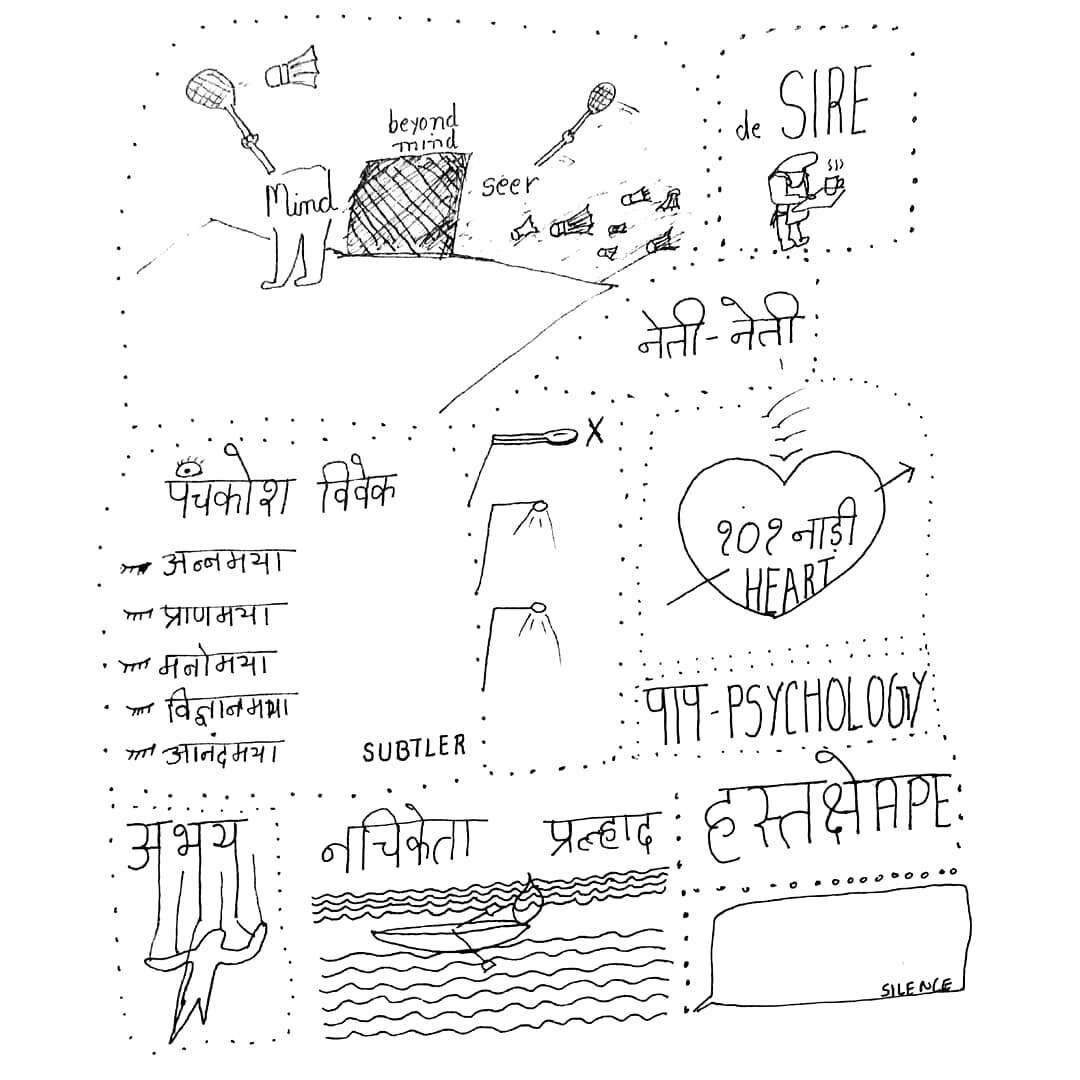 beyond
mind
Mind
seer
de SIRE
नेती-नेती
X
पँचकोश विवेक
अन्नमया
प्राणमया
मनोमया
विज्ञानमया
आनंदमया
SUBTLER
१०१ नाड़ी
HEART
पाप-PSYCHOLOGY
अभय
नचिकेता प्रल्हाद
हस्तक्षेAPE
SILENCE